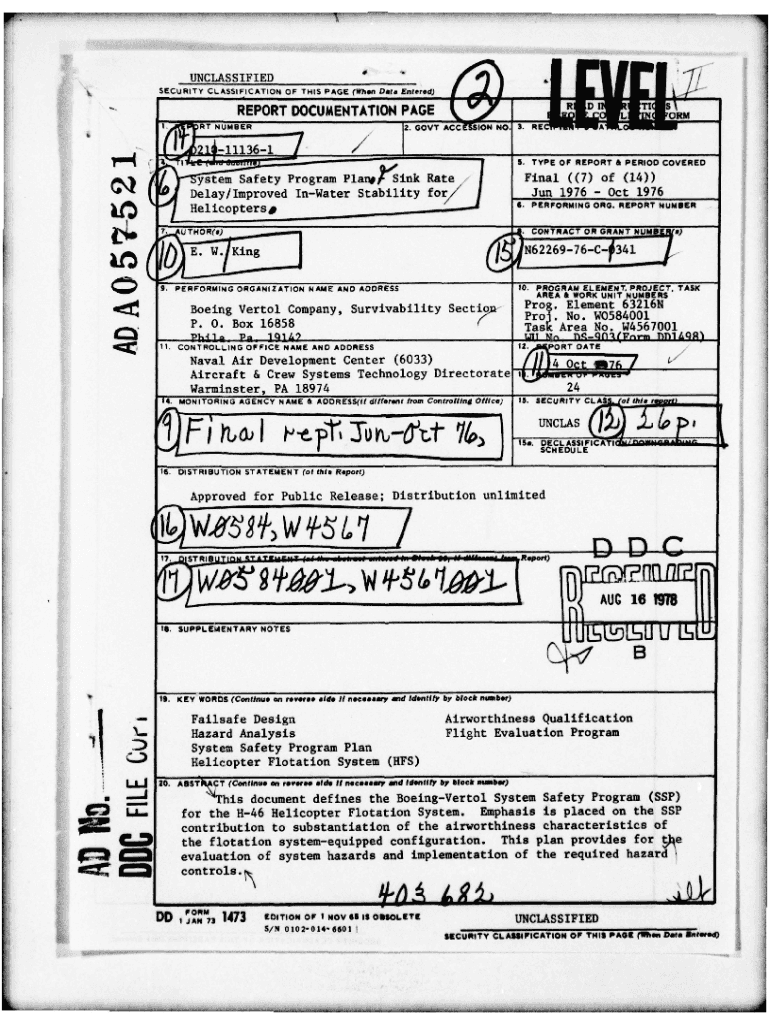 UNCLASSIFIED
SECURITY CLASSIFICATION OF THIS PAGE (When Data Entered)
2
LEVEL II
REPORT DOCUMENTATION PAGE
FORM
1. REPORT NUMBER
2. GOVT ACCESSION NO.
14
D210-11136-1
4. TITLE (and Subtitle)
5. TYPE OF REPORT & PERIOD COVERED
6
System Safety Program Plan Sink Rate
Delay/Improved In-Water Stability for
Helicopters.
Final ((7) of (14))
Jun 1976 - Oct 1976
6. PERFORMING ORG. REPORT NUMBER
7. AUTHOR(s)
8. CONTRACT OR GRANT NUMBER(s)
10
E. W. King
15
N62269-76-C-0341
9. PERFORMING ORGANIZATION NAME AND ADDRESS
Boeing Vertol Company, Survivability Section
P. O. Box 16858
Phila. Pa. 19142
10. PROGRAM ELEMENT, PROJECT, TASK
AREA & WORK UNIT NUMBERS
Prog. Element 63216N
Proj. No. WO584001
Task Area No. W4567001
WU No. DS-903(Form DD1498)
11. CONTROLLING OFFICE NAME AND ADDRESS
Naval Air Development Center (6033)
Aircraft & Crew Systems Technology Directorate
Warminster, PA 18974
12. REPORT DATE
11
4 Oct 76
13. NUMBER OF PAGES
24
14. MONITORING AGENCY NAME & ADDRESS(if different from Controlling Office)
15. SECURITY CLASS. (of this report)
9
Final rept. Jun-Oct 76,
UNCLAS
12
26p.
15a. DECLASSIFICATION/DOWNGRADING
SCHEDULE
16. DISTRIBUTION STATEMENT (of this Report)
Approved for Public Release; Distribution unlimited
16
W0584, W4567
17. DISTRIBUTION STATEMENT (of the abstract entered in Block 20, if different from Report)
17
W0584001, W4567001
DDC
RECEIVED
AUG 16 1978
RECEIVED
B
18. SUPPLEMENTARY NOTES
19. KEY WORDS (Continue on reverse side if necessary and identify by block number)
Failsafe Design
Hazard Analysis
System Safety Program Plan
Helicopter Flotation System (HFS)
Airworthiness Qualification
Flight Evaluation Program
20. ABSTRACT (Continue on reverse side if necessary and identify by block number)
This document defines the Boeing-Vertol System Safety Program (SSP)
for the H-46 Helicopter Flotation System. Emphasis is placed on the SSP
contribution to substantiation of the airworthiness characteristics of
the flotation system-equipped configuration. This plan provides for the
evaluation of system hazards and implementation of the required hazard
controls.
403 682
DD FORM 1 JAN 73 1473
EDITION OF 1 NOV 65 IS OBSOLETE
S/N 0102-014-6601
UNCLASSIFIED
SECURITY CLASSIFICATION OF THIS PAGE (When Data Entered)
AD A057521
AD No.
DDC FILE COPY